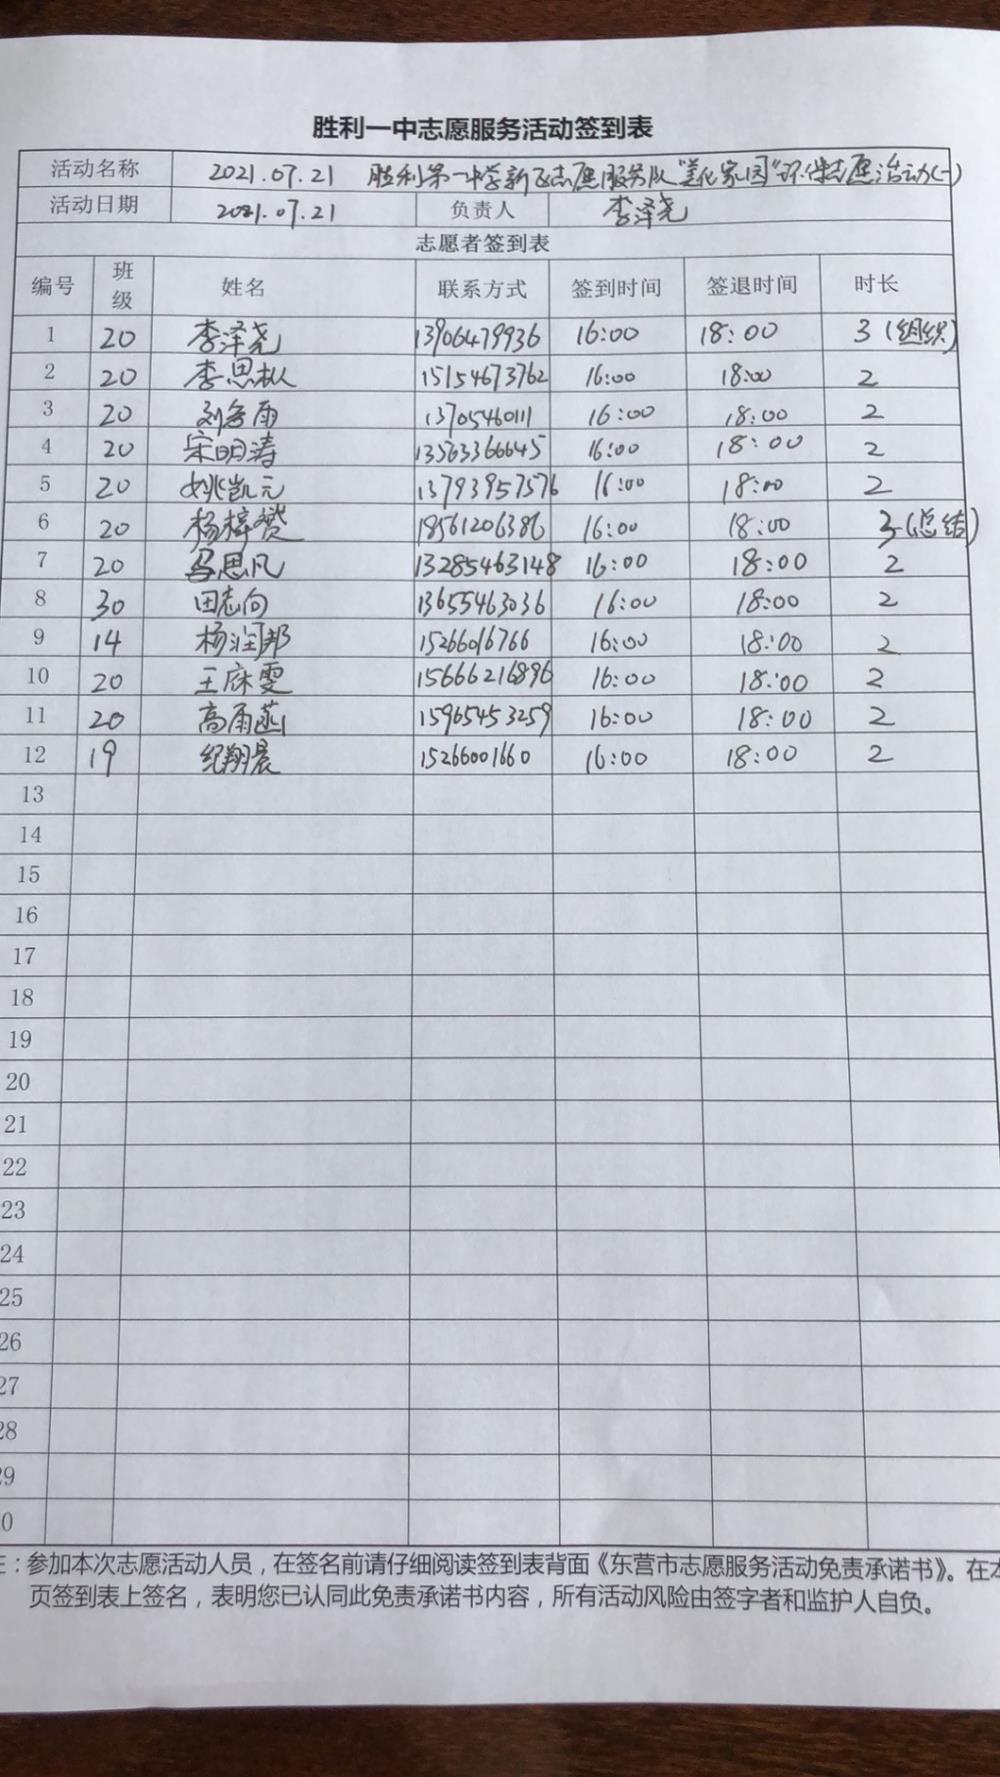 胜利一中志愿服务活动签到表
活动名称 2021.07.21 胜利第一中学新区志愿服务队"美化家园"环保志愿活动(一)
活动日期 2021.07.21 负责人 李泽尧
志愿者签到表
编号 班级 姓名 联系方式 签到时间 签退时间 时长
1 20 李泽尧 13906479936 16:00 18:00 3(组织)
2 20 李思枞 15154673762 16:00 18:00 2
3 20 刘雨 13705460111 16:00 18:00 2
4 20 宋明涛 13563366645 16:00 18:00 2
5 20 姚凯元 13793957576 16:00 18:00 2
6 20 杨梓赟 18561206386 16:00 18:00 3(总结)
7 20 马思凡 13285463148 16:00 18:00 2
8 30 田志向 13655463036 16:00 18:00 2
9 14 杨润邦 15266016766 16:00 18:00 2
10 20 王庥雯 15666216896 16:00 18:00 2
11 20 高雨菡 15965453259 16:00 18:00 2
12 19 纪翔晨 15266001660 16:00 18:00 2
13
14
15
16
17
18
19
20
21
22
23
24
25
26
27
28
29
0
注：参加本次志愿活动人员，在签名前请仔细阅读签到表背面《东营市志愿服务活动免责承诺书》。在本
页签到表上签名，表明您已认同此免责承诺书内容，所有活动风险由签字者和监护人自负。